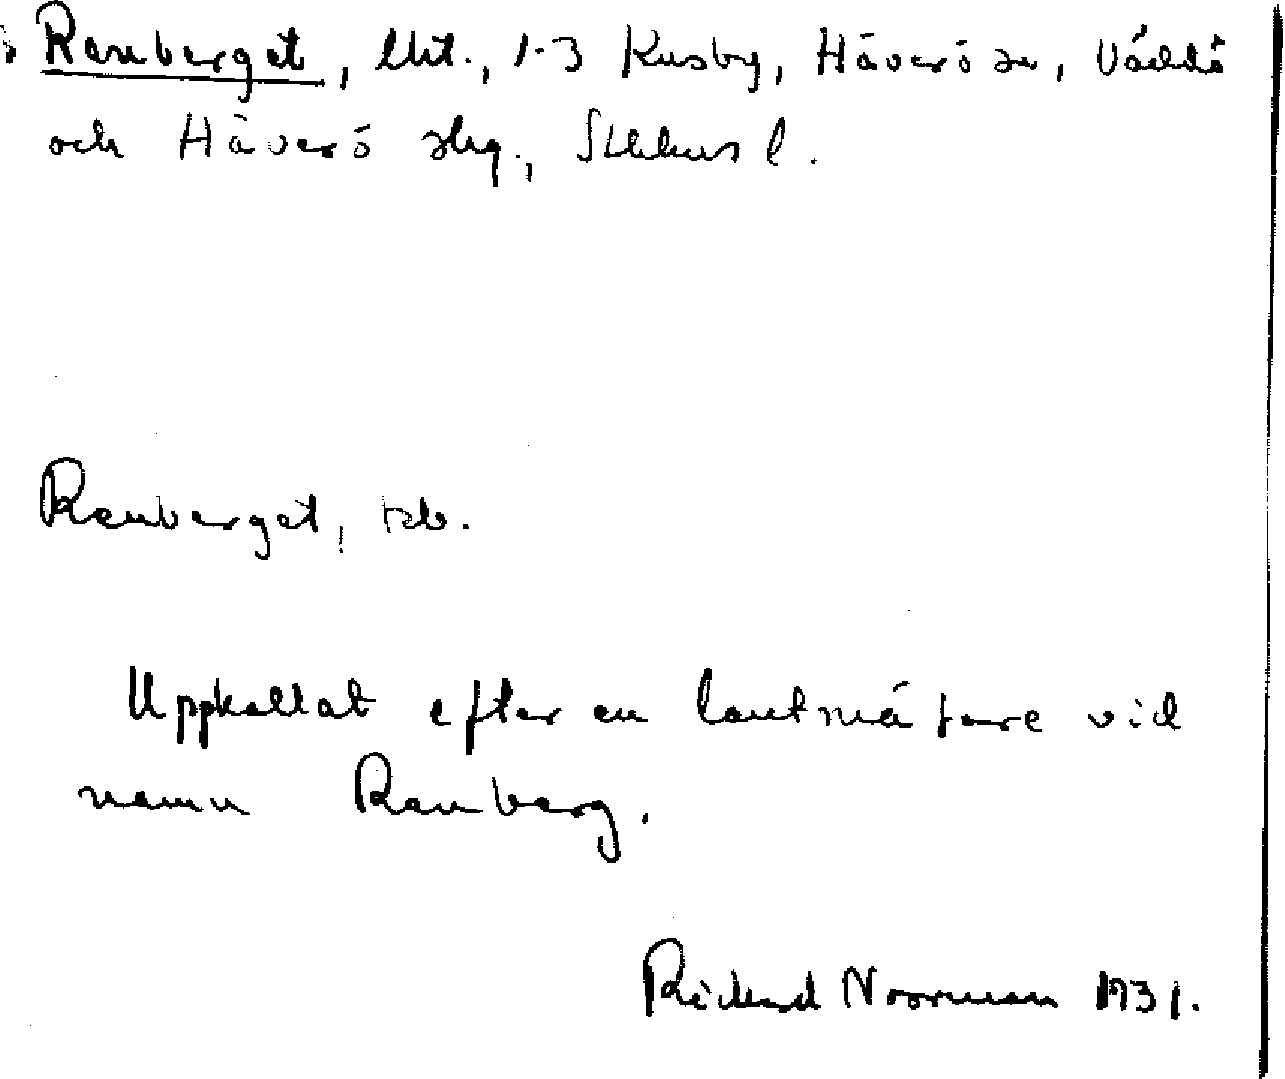 Ranberget, lht., 1-3 Kusby, Häverö sn, Väddö
och Häverö skg., Sthlms l.
Ranberget, tsb.
Uppkallat efter en lantmätare vid
namn Ranberg.
Rickard Norrman 1931.